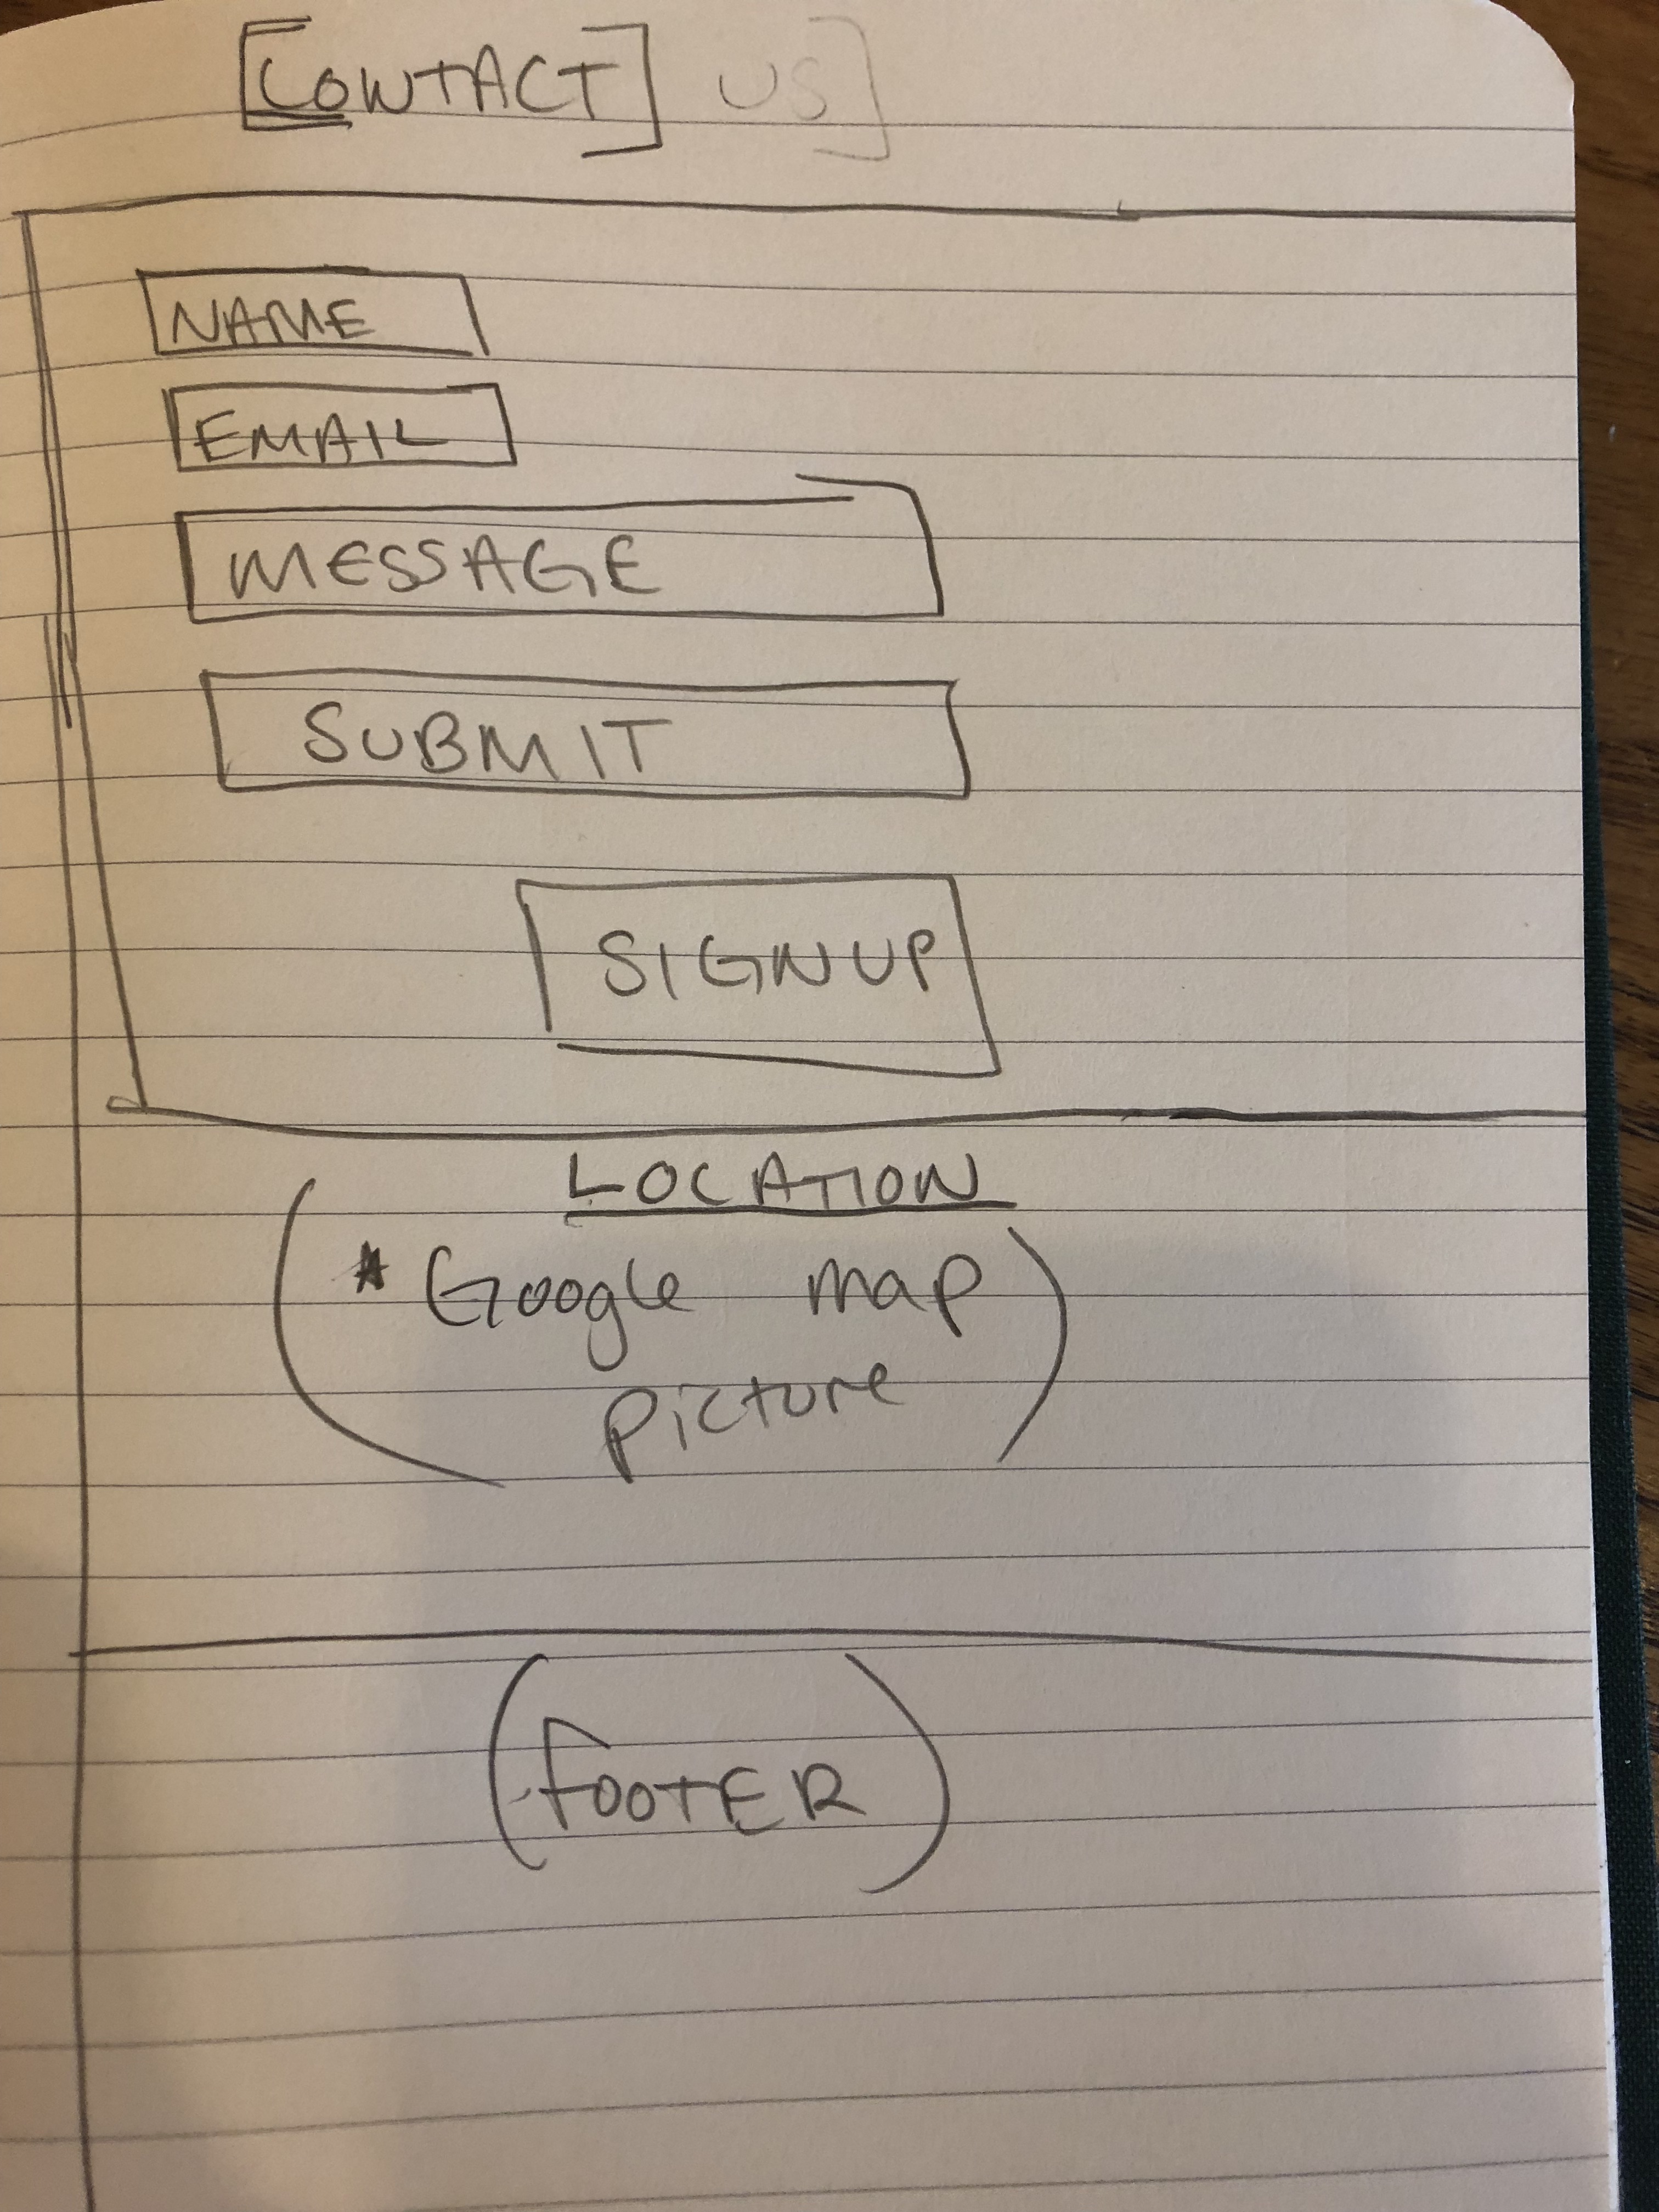 [CONTACT] US]
NAME
EMAIL
MESSAGE
SUBMIT
SIGNUP
LOCATION
(* Google map
picture)
(FOOTER)